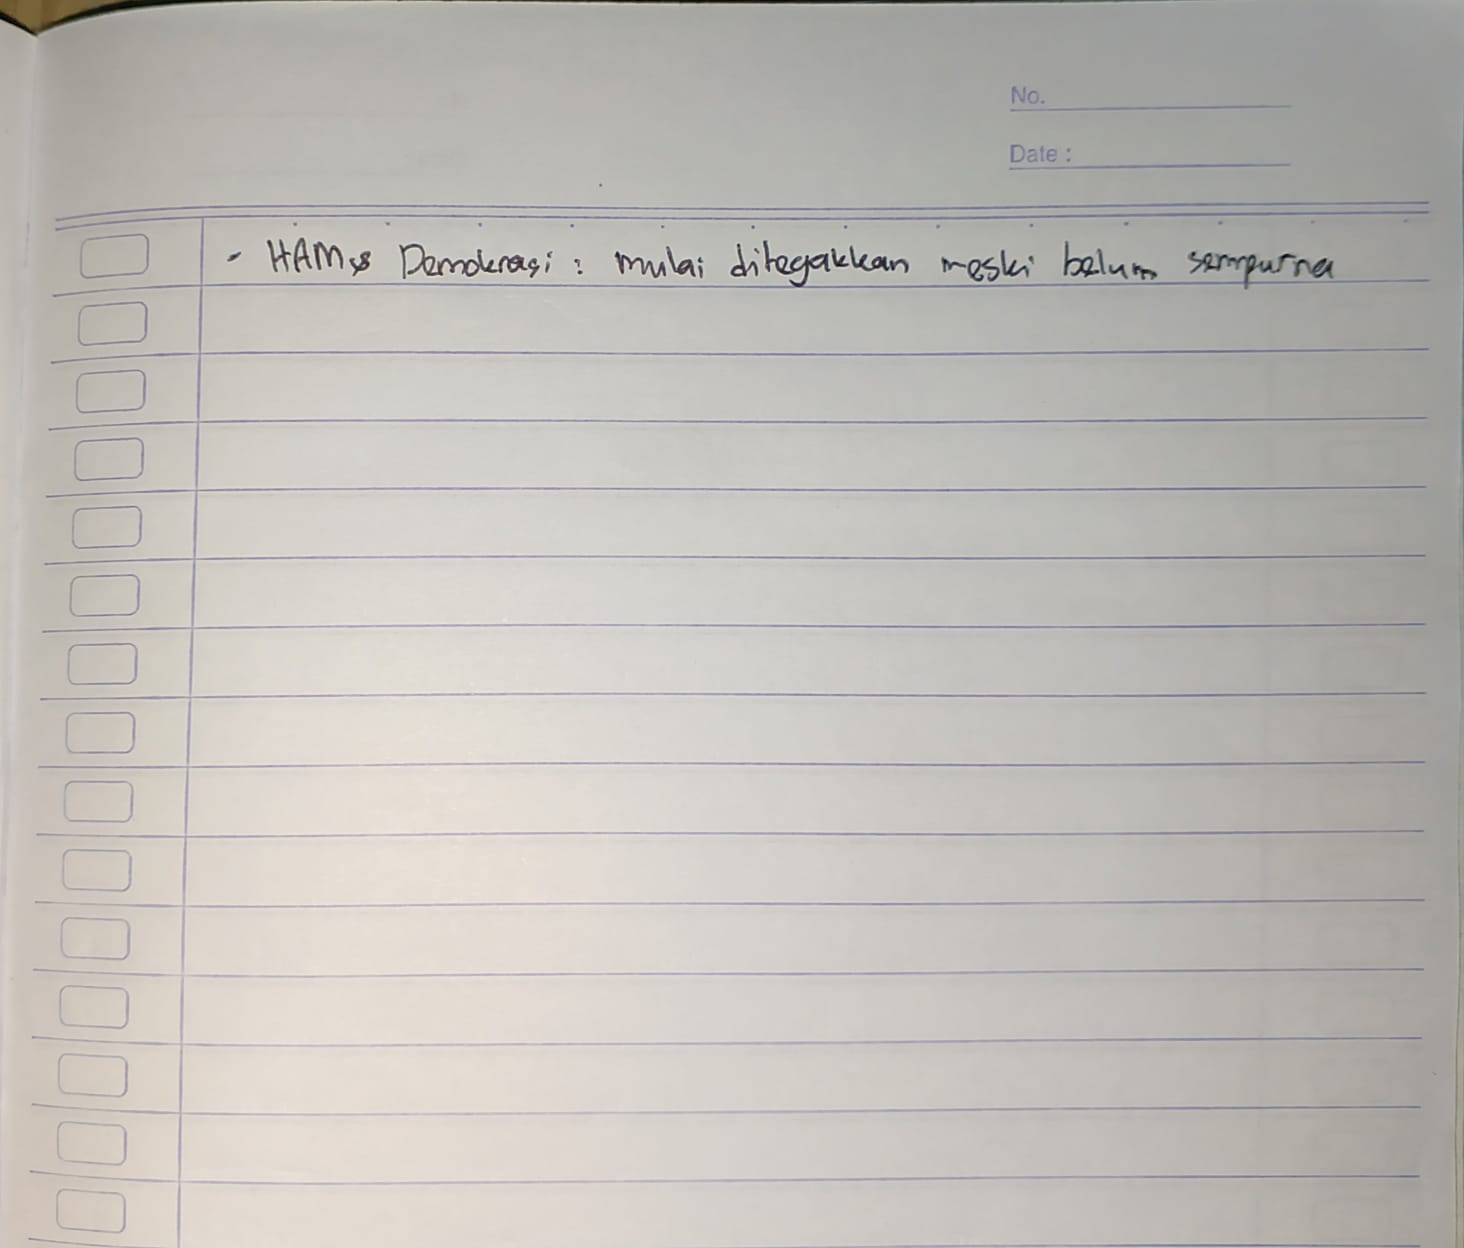 No.
Date :
- HAM & Demokrasi : mulai ditegakkan meski belum sempurna